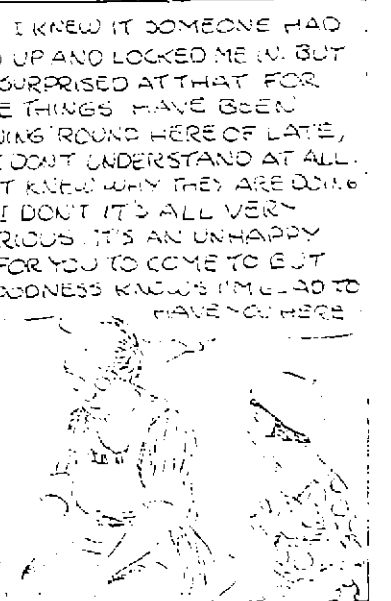 I KNEW IT SOMEONE HAD
UP AND LOCKED ME IN. BUT
SURPRISED AT THAT FOR
THINGS HAVE BEEN
ROUND HERE OF LATE,
DON'T UNDERSTAND AT ALL.
KNEW WHY THEY ARE DOING
I DON'T IT'S ALL VERY
IT'S AN UNHAPPY
FOR YOU TO COME TO BUT
KNOWS I'M GLAD TO
HAVE YOU HERE